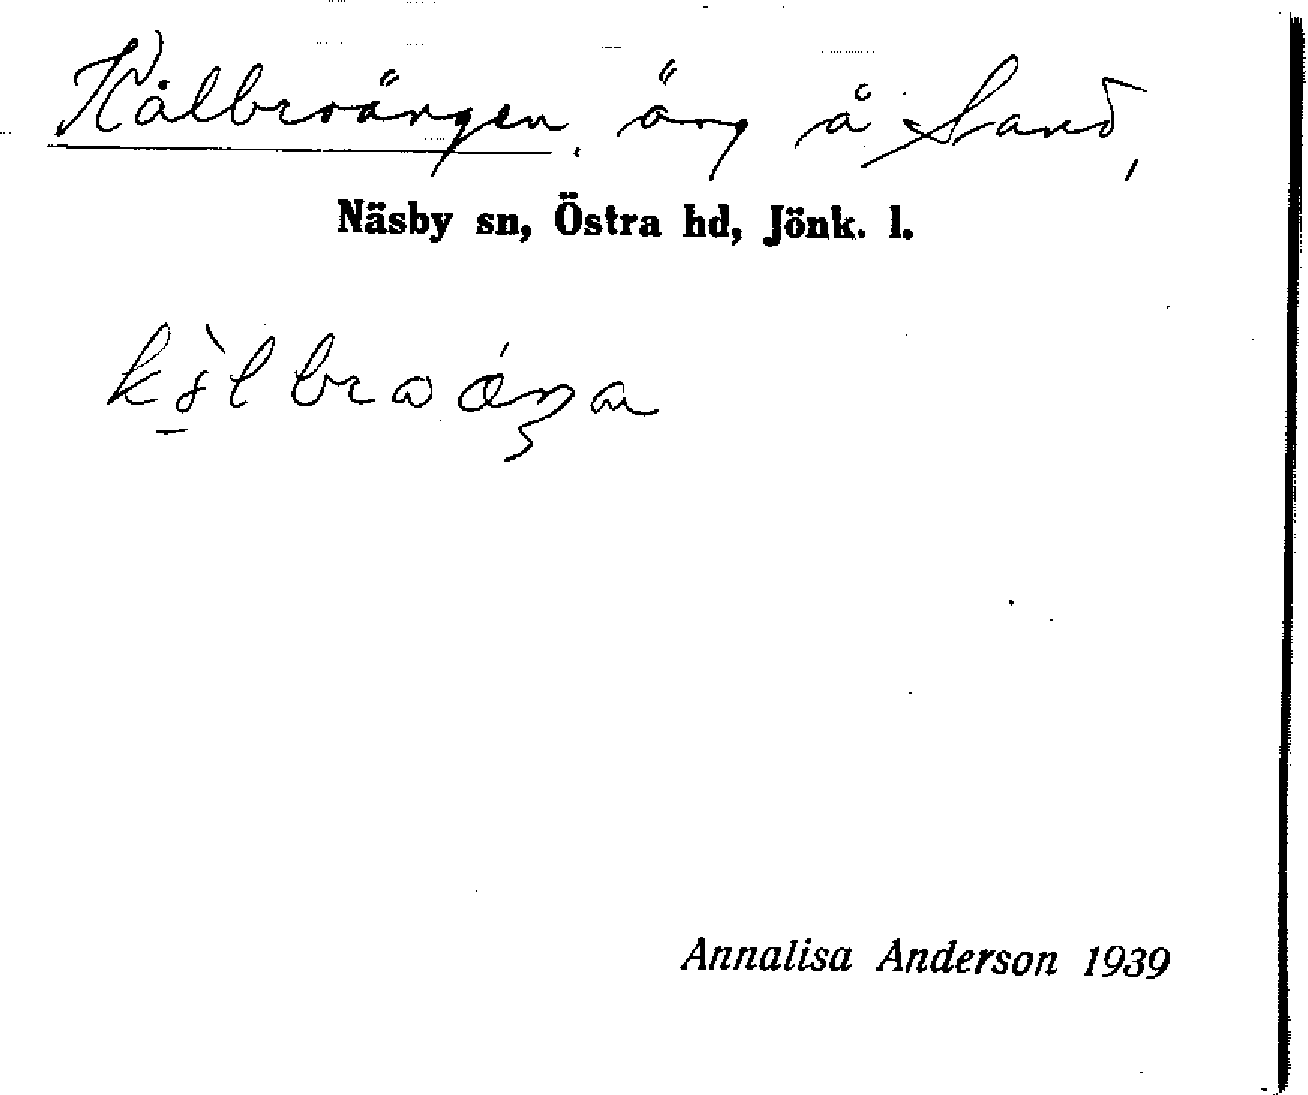 Kålbroängen, äng å Sand,
Näsby sn, Östra hd, Jönk. l.
Annalisa Anderson 1939